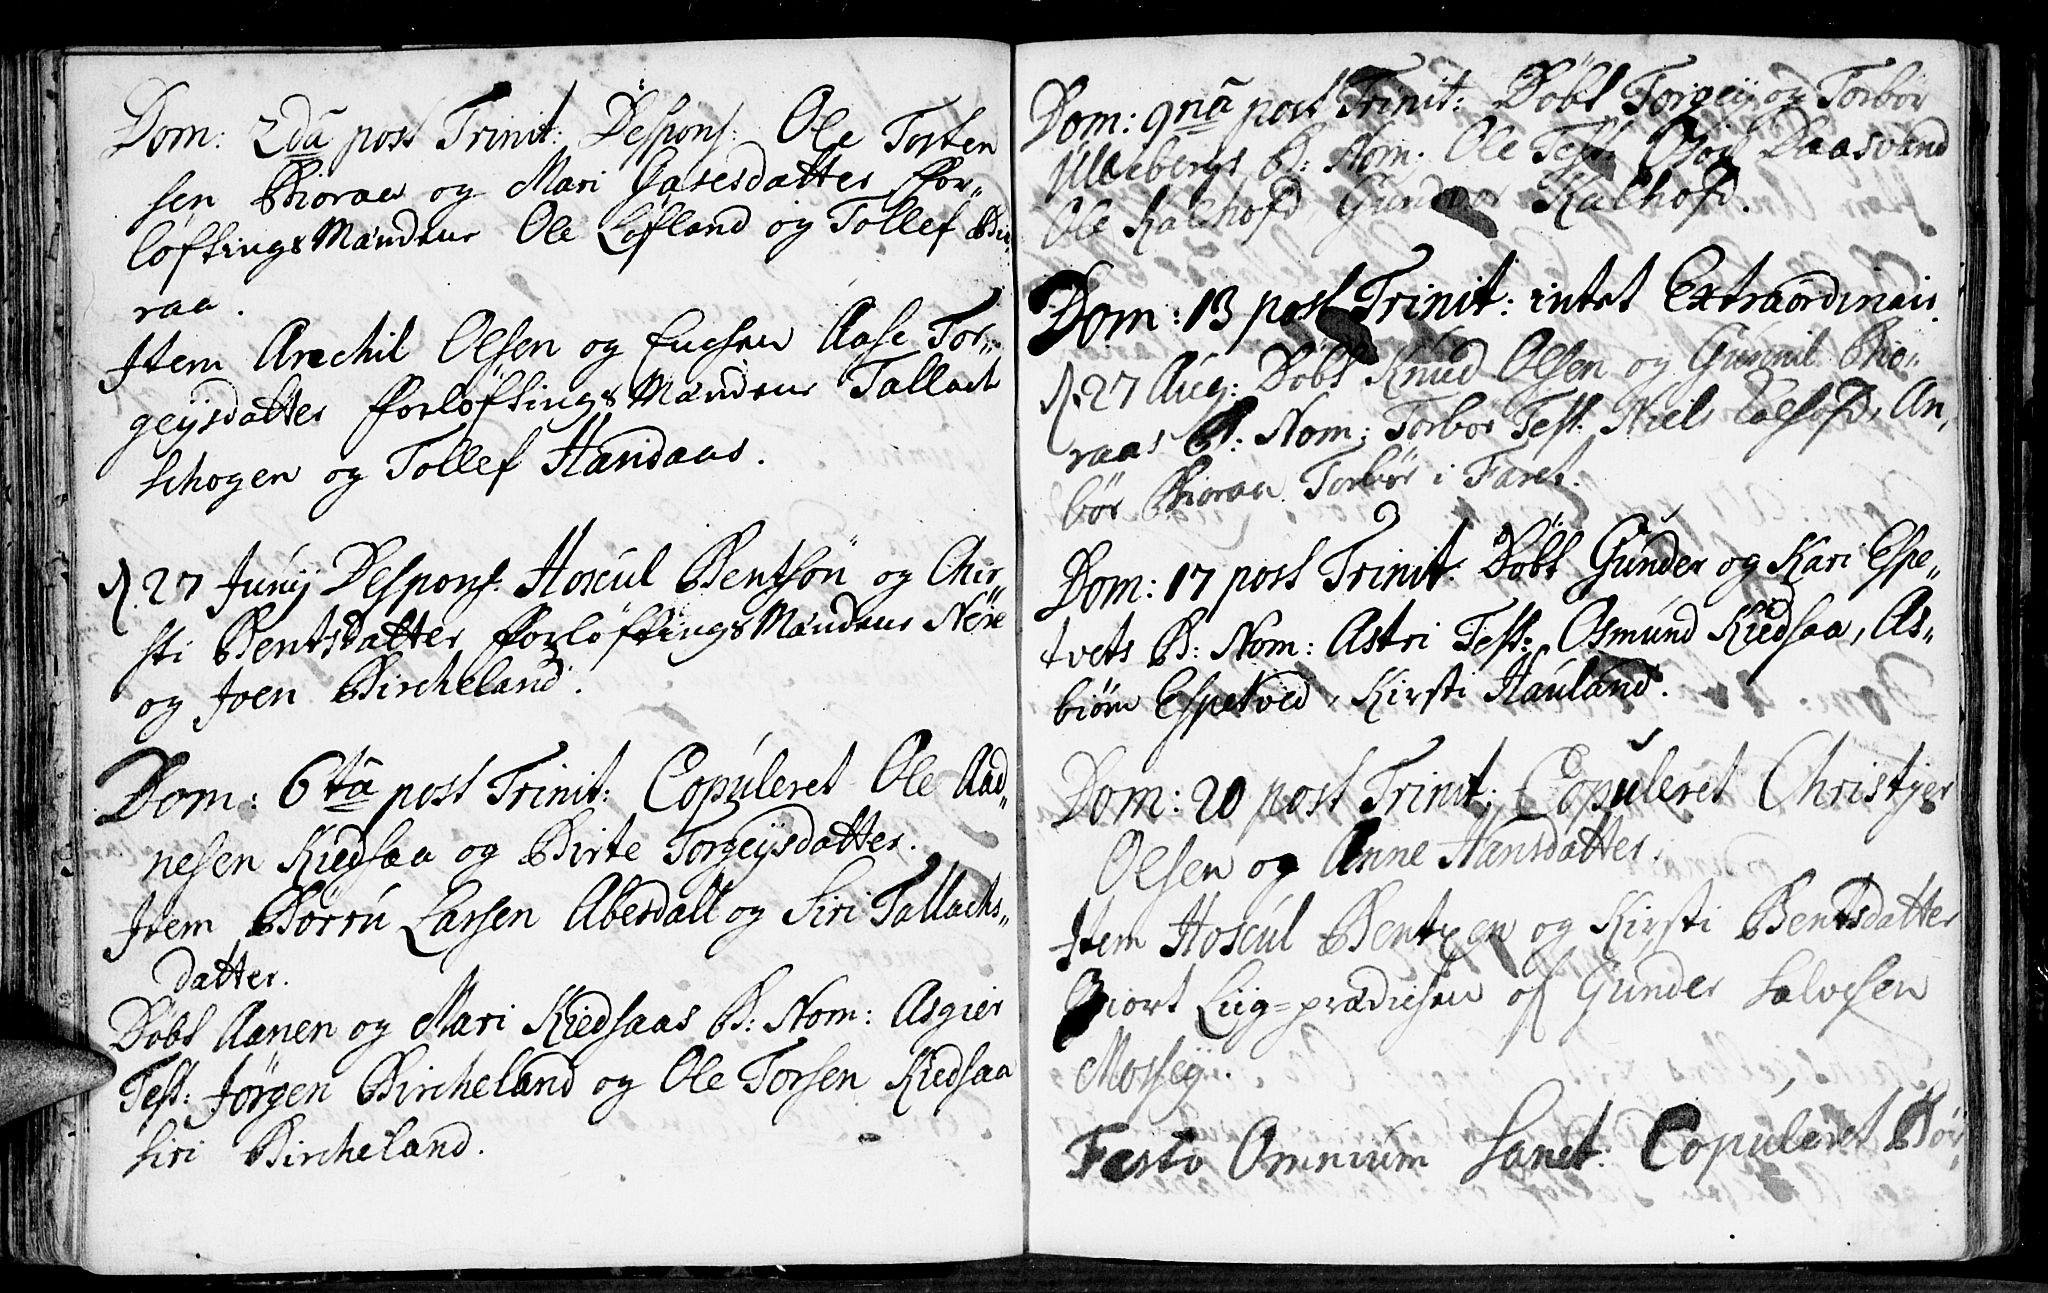 Dom: 2dâ post Trinit: Despons: Ole Torsten
sen Bioraa og Mari Gasesdatter ffor-
løftings Mændene Ole Løfland og Tollef Bio-
raa.
Item Arachil Olsen og Enchen Aase Tor-
geÿsdatter fforløftings Mændene Tallach
schogen og Tollef Handaas.
d. 27 Junij Despons. Hoscul Bentsøn og Chir-
sti Bentsdatter fforløftings Mændene Nere
og Joen Bircheland.
Dom: 6tâ post Trinit: Copuleret Ole Aad-
nesen Kiedsaa og Birte Torgeÿsdatter.
Item Børru Larsen Aberdall og Siri Tallachs-
datter.
Døbt Aanen og Mari Kiedsaas B: Nom: Asgier
Test: Jørgen Bircheland og Ole Torsen Kiedsaa
Siri Bircheland.
Dom: 9nâ post Trinit: Døbt Torgeÿ og Torbor
Ulleebergs B: Nom: Ole Test: Daasvand
Ole Kalhofd, Gundor Kalhofd.
Dom: 13 post Trinit: intet Extraordinair.
d. 27 Aug: Døbt Knud Olsen og Gunnil Bio-
raas B: Nom: Torbor Test: Niels An-
bør Bioraa Torbør i Faret.
Dom: 17 post Trinit: Døbt Gunder og Kari Espe-
tvets B: Nom: Astri Test: Osmund Kiedsaa, As-
biørn Espetved, Kirsti Hauland.
Dom: 20 post Trinit: Copuleret Christyer
Olsen og Anne Hansdatter.
Item Hoscul Bentzen og Kirsti Bentsdatter
Giort Liig=prædichen of Gunder Salvesen
Mosseÿ.
Festo Omnium Sanct: Copuleret Bør-